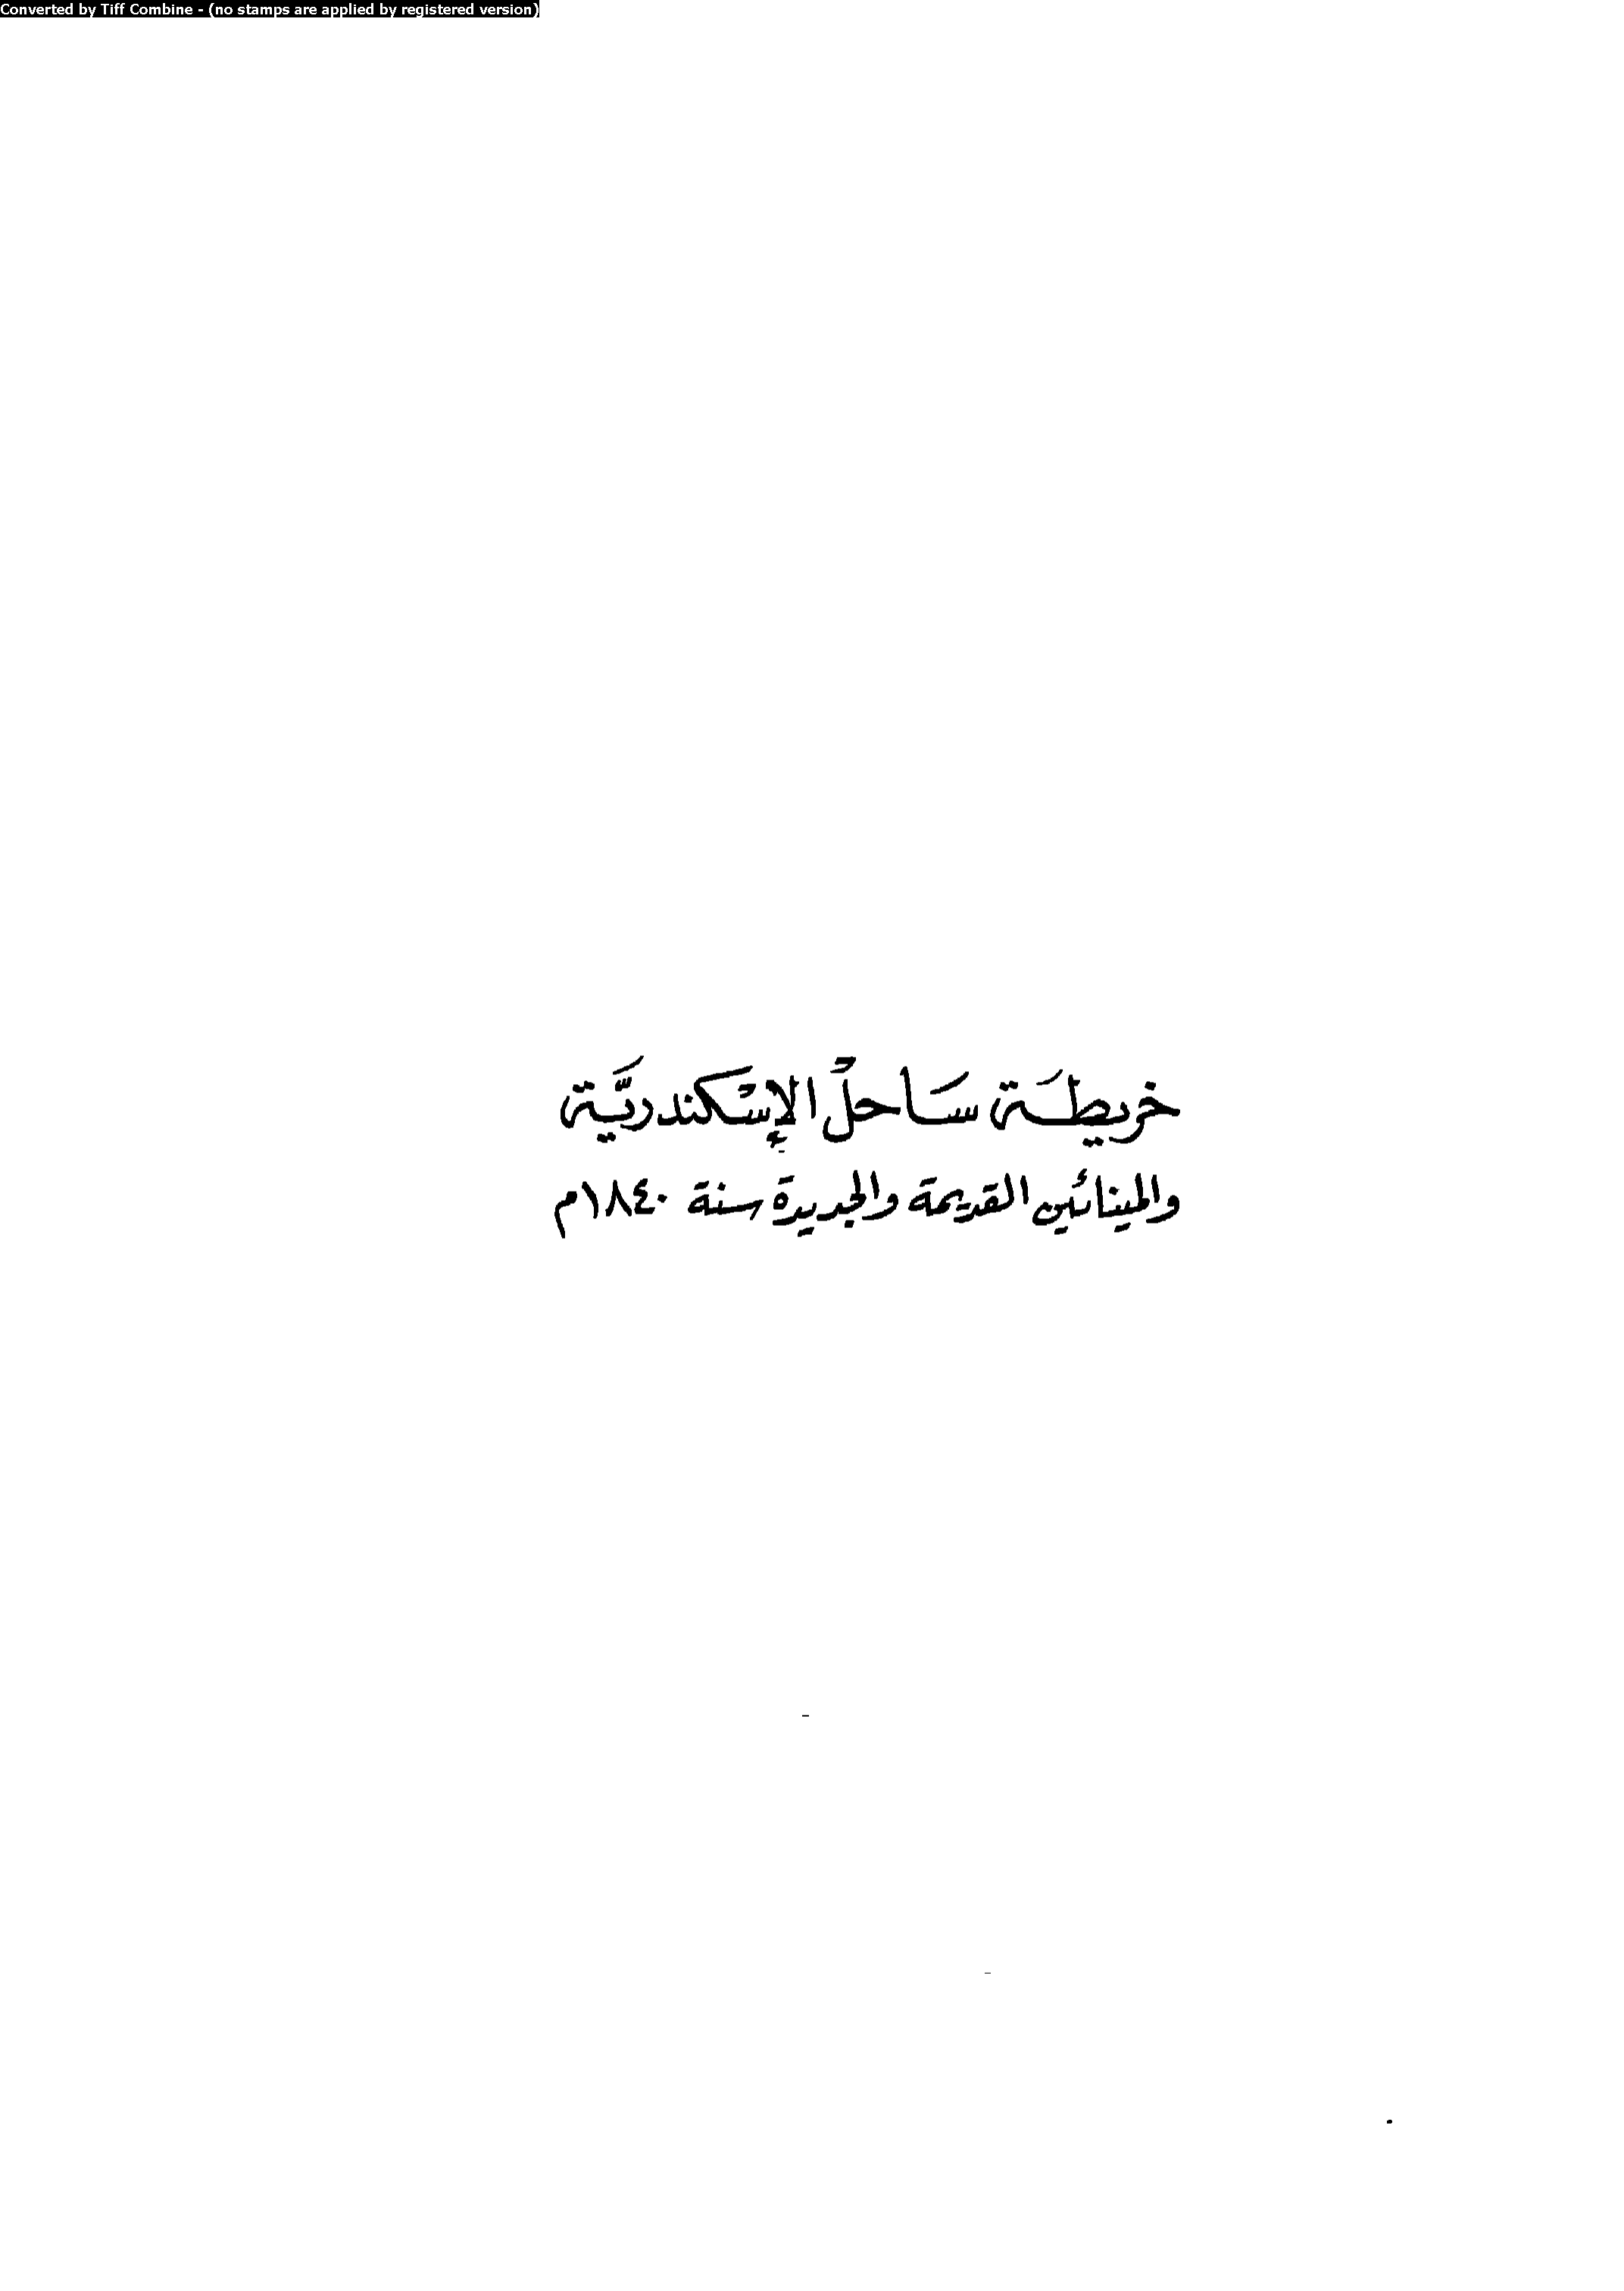 Converted by Tiff Combine - (no stamps are applied by registered version)
خريطة ساحل الإسكندرية
والمينائين القديمة والجديدة سنة ١٨٤٠م